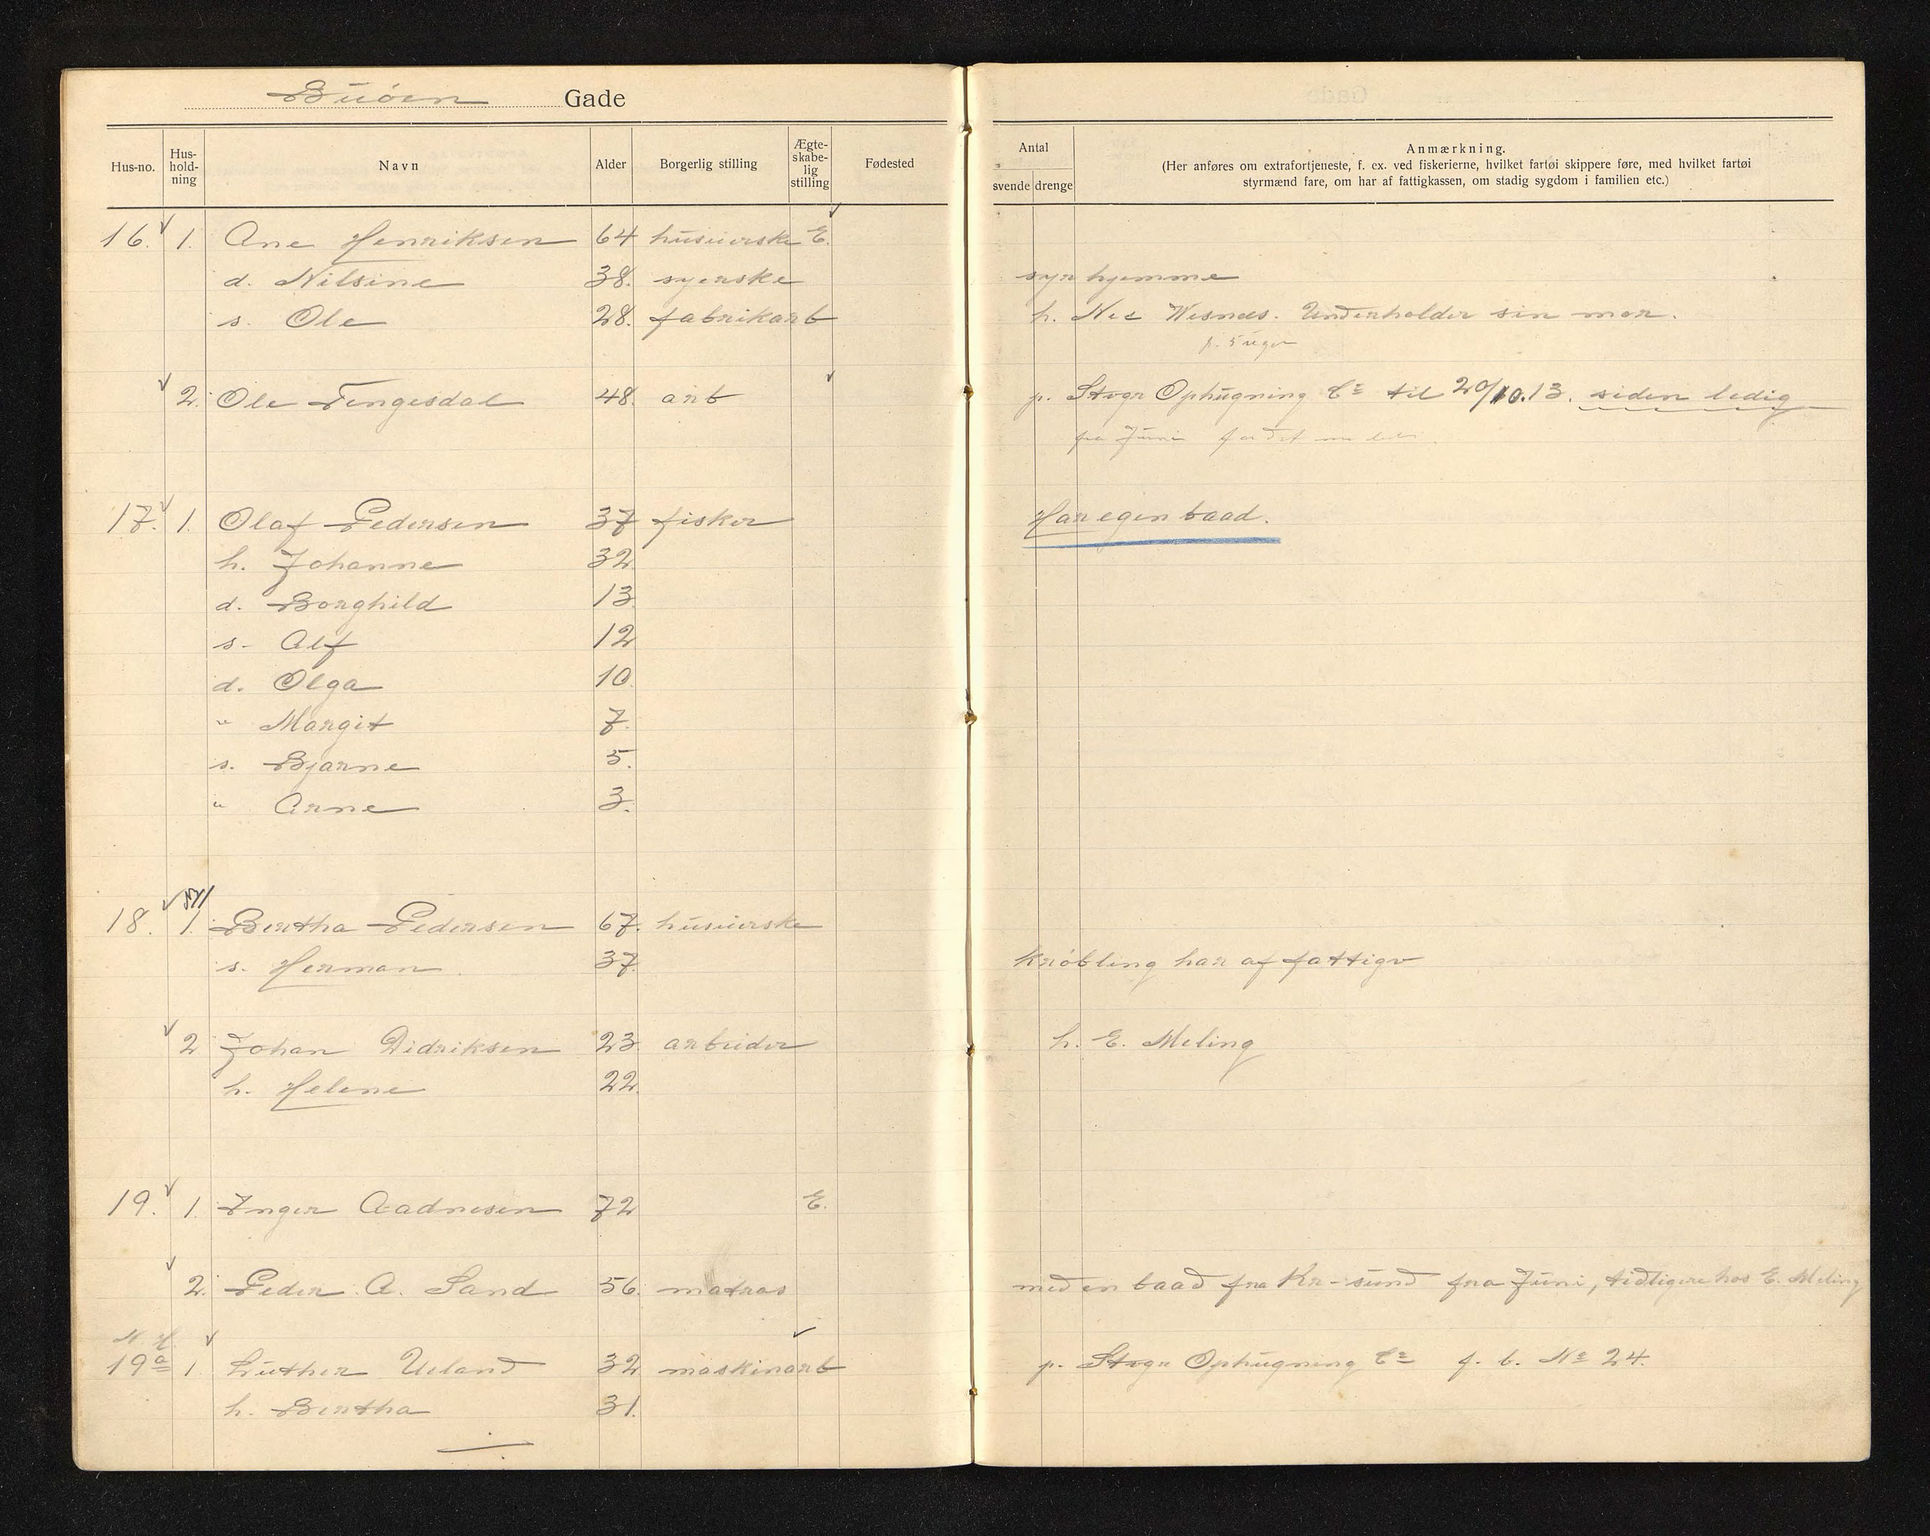 Buöen Gade
Hus-no. Hus-hold-ning Navn Alder Borgerlig stilling Ægte-skabe-lig stilling Fødested
Antal svende drenge Anmærkning.
(Her anføres om extrafortjeneste, f. ex. ved fiskerierne, hvilket fartøi skippere føre, med hvilket fartøi
styrmænd fare, om har af fattigkassen, om stadig sygdom i familien etc.)
16. 1. Ane Henriksen 64 husierske E.
d. Nilsine 38. syerske syr hjemme
s. Ole 28. fabrikarb h. Nes Wesnes. Underholder sin mor.
p. 5 uger
2. Ole Tengesdal 48. arb p. Stvgr Ophugning Co til 20/10.13. siden ledig
fra Juni
17. 1. Olaf Pedersen 37 fisker Har egen baad.
h. Johanne 32
d. Borghild 13
s. Alf 12
d. Olga 10
" Margit 7.
s. Bjarne 5.
" Arne 3.
18. 1. Bertha Pedersen 67. husierske
s. Herman 37 Krøbling har af fattigv
2 Johan Didriksen 23. arbeider h. E. Meling
h. Helene 22
19. 1. Inger Aadnesen 72 E.
2. Peder A. Sand 56. matros med en baad fra Kr-sund fra Juni, tidligere hos E. Meling
N. H.
19a 1. Luther Ueland 32 maskinarb p. Stvgr Ophugning Co f. b. No 24.
h. Bertha 31.